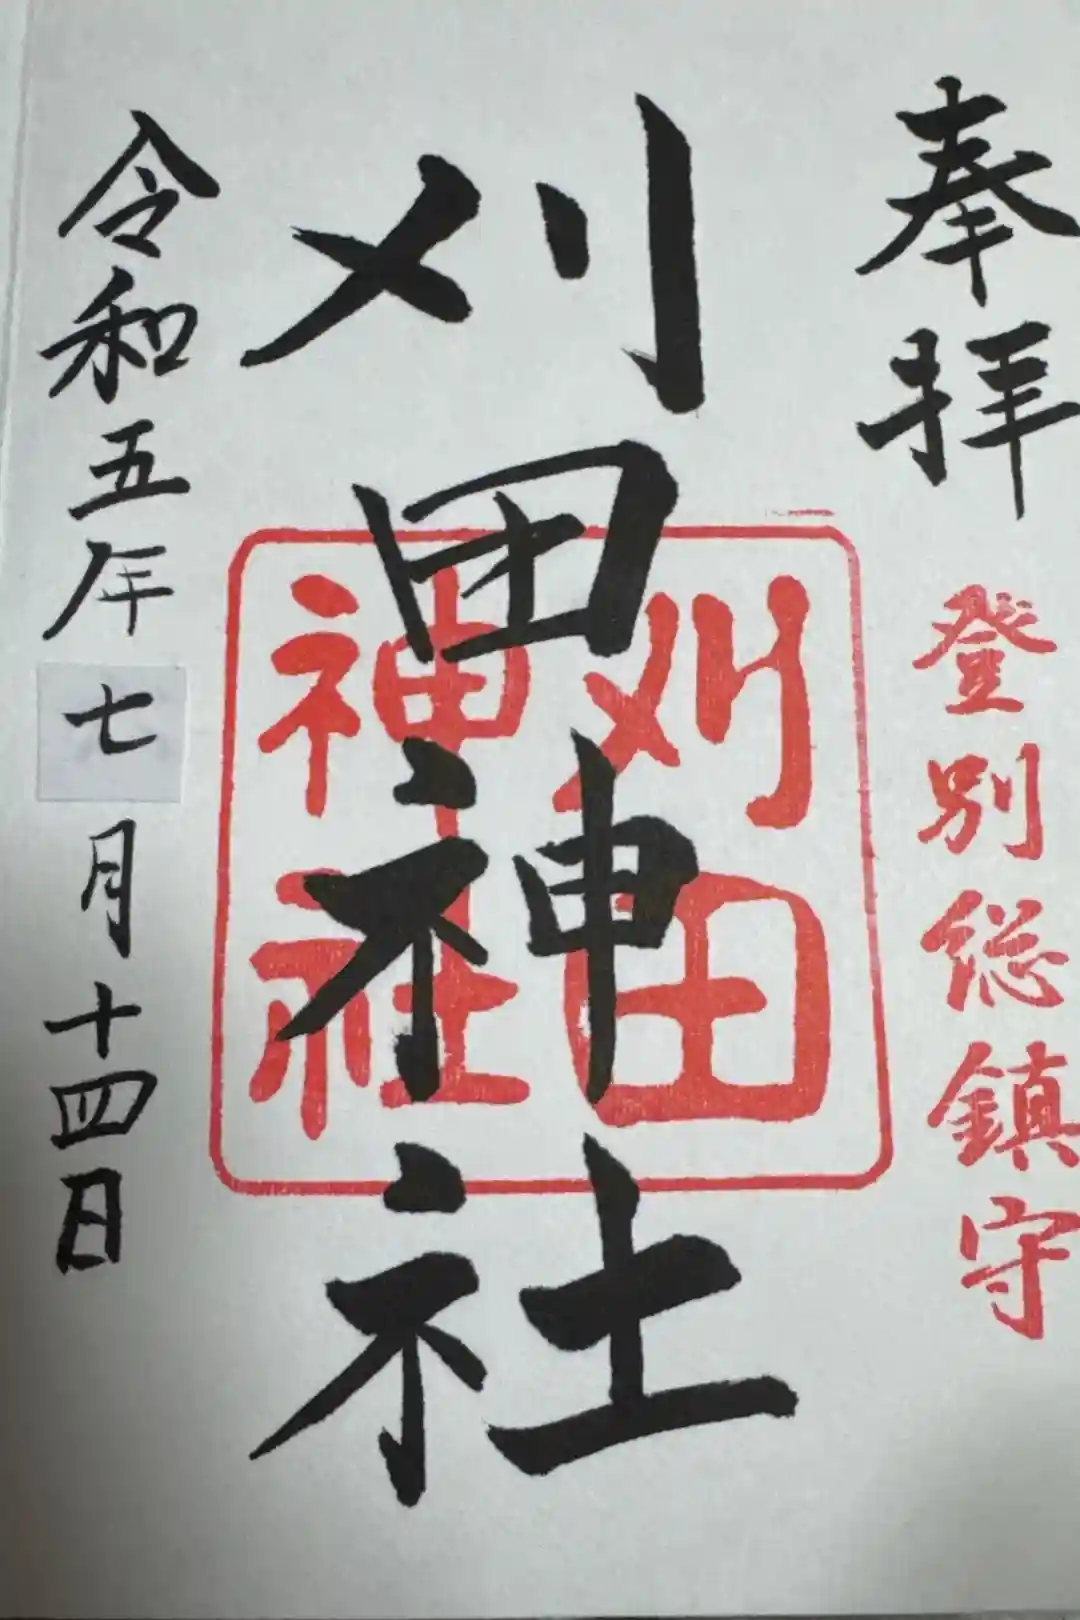 奉拝
登別総鎮守
刈田神社
刈田
神社
令和五年七月十四日